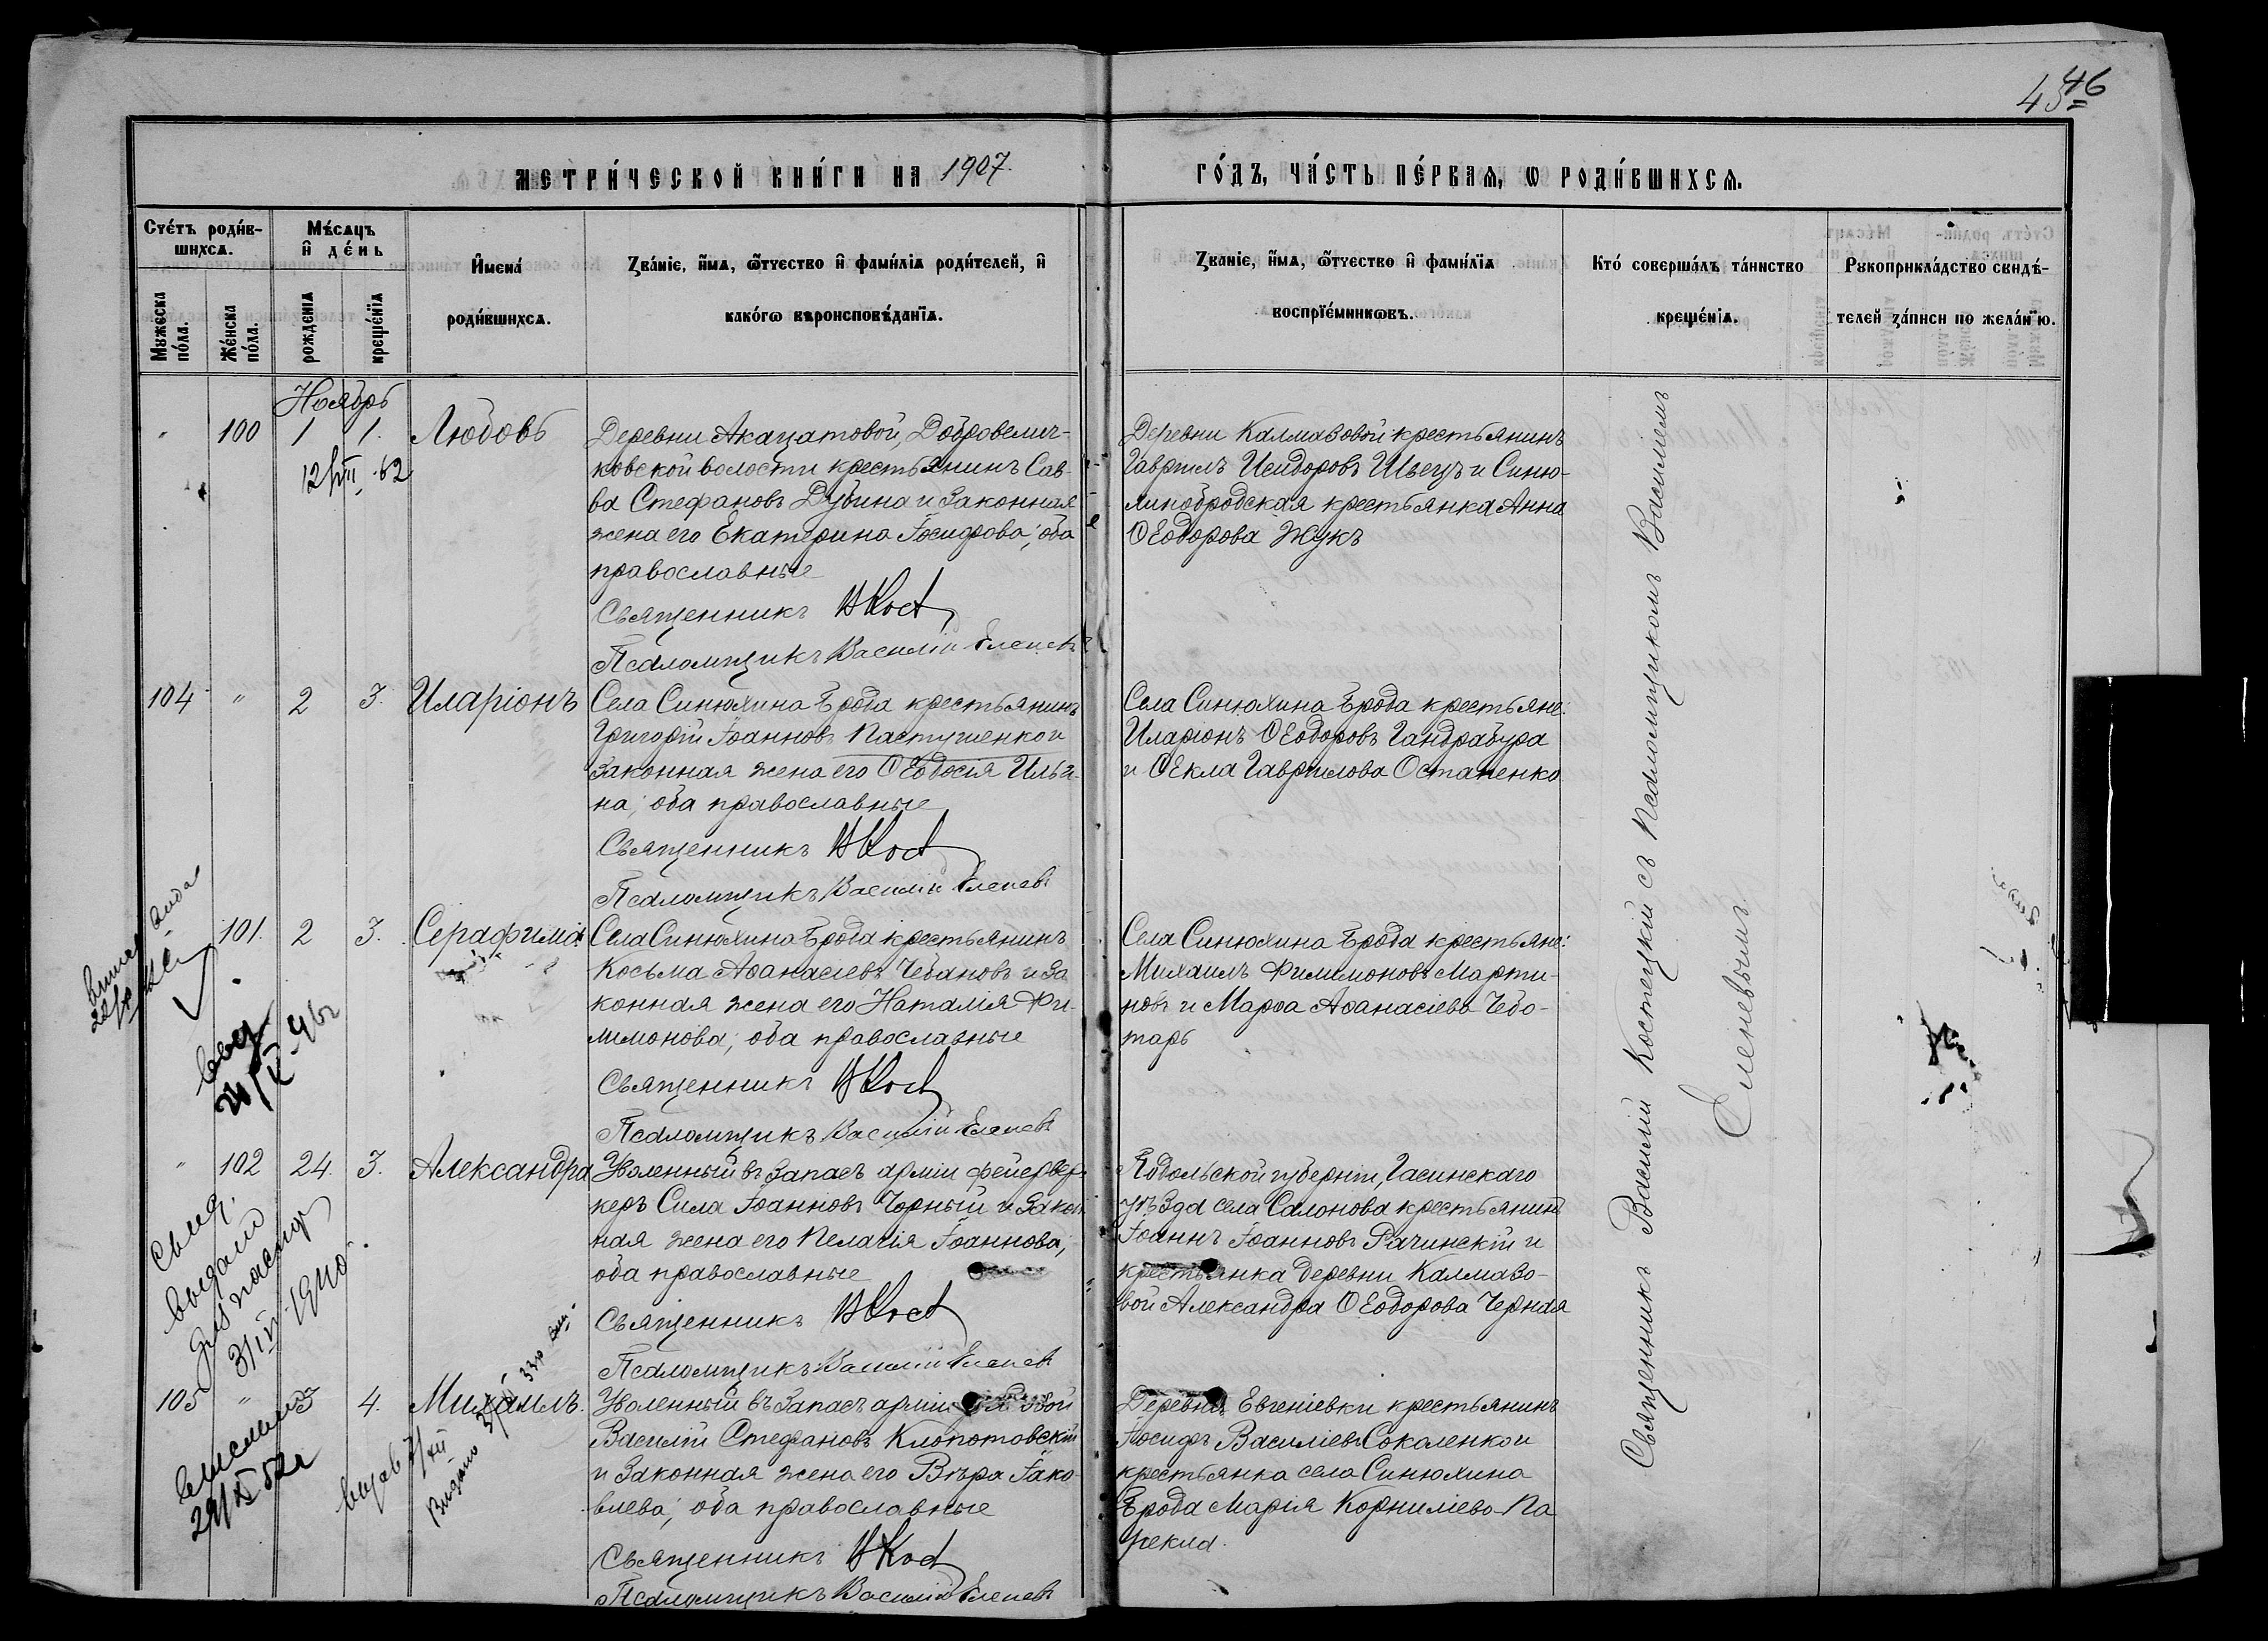 46
45
МЕТРИ́ЧЕСКОЙ КНИ́ГИ НА 1907. ГО́ДЪ, ЧА́СТЬ ПЕ́РВАѦ, Ѡ РОДИ́ВШИХСѦ.
Сче́тъ роди́в-
шихсѧ.
Мꙋжеска по́ла.
Же́нска по́ла.
Мѣ́сѧцъ
и҆ де́нь
рожденїѧ
креще́нїѧ
И҆мена́
роди́вшихсѧ.
Зва́нїе, и҆́мѧ, ѻ҆́тчество и҆ фами́лїѧ роди́телей, и҆
како́гѡ вѣроисповѣ́данїѧ.
Зва́нїе, и҆́мѧ, ѻ҆́тчество и҆ фами́лїѧ
воспрїе́мникѡвъ.
Кто́ соверша́лъ та́инство
креще́нїѧ.
Рꙋкоприкла́дство свидѣ́-
телей за́писи по жела́нїю.
Ноябрь
" 100 1 1. Любовь
12/VII. 62
Деревни Акацатовой, Добровелич-
ковской волости крестьянинъ Сав-
ва Стефановъ Дубина и законная
жена его Екатерина Іосифова, оба
православные
Священникъ ВКост
Псаломщикъ Василій Еленевъ
Деревни Калмазовой крестьянинъ
Гавріилъ Исидоровъ Швецъ и Синю-
хинобродская крестьянка Анна
Ѳеодорова Жукъ
104 " 2 3. Иларіонъ
Села Синюхина Брода крестьянинъ
Григорій Іоанновъ Пастушенко и
законная жена его Ѳеодосія Ильи-
на; оба православные
Священникъ ВКост
Псаломщикъ Василій Еленевъ
Села Синюхина Брода крестьяне:
Иларіонъ Ѳеодоровъ Гандрабура
и Ѳекла Гавріилова Остапенко
101. 2 3. Серафима
Села Синюхина Брода крестьянинъ
Косьма Аѳанасіевъ Чебановъ и за
конная жена его Наталія Фи-
лимонова; оба православные
Священникъ ВКост
Псаломщикъ Василій Еленевъ
Села Синюхина Брода крестьяне:
Михаилъ Филимоновъ Марти-
новъ и Марѳа Аѳанасіева Чебо-
таръ
" 102 24. 3. Александра
Уволенный въ запасъ арміи фейервер-
керъ Сила Іоанновъ Чорный и закон
ная жена его Пелагія Іоаннова;
оба православные
Священникъ ВКост
Псаломщикъ Василій Еленевъ
Подольской губерніи, Гайсинскаго
уѣзда села Солонова крестьянинъ
Іоаннъ Іоанновъ Рачинскій и
крестьянка деревни Калмазо-
вой Александра Ѳеодорова Черная
выдано
3/IV 1910.
105 " 3 4. Михаилъ.
Уволенный въ запасъ арміи рядовой
Василій Стефановъ Клопотовскій
и законная жена его Вѣра Іако-
влева; оба православные
Священникъ ВКост
Псаломщикъ Василій Еленевъ
Деревни Евгеніевки крестьянинъ
Іосифъ Василіевъ Соколенко и
крестьянка села Синюхина
Брода Марія Корниліева Па
рекла.
Священникъ Василій Костецкій съ псаломщикомъ Василіемъ
Еленевымъ